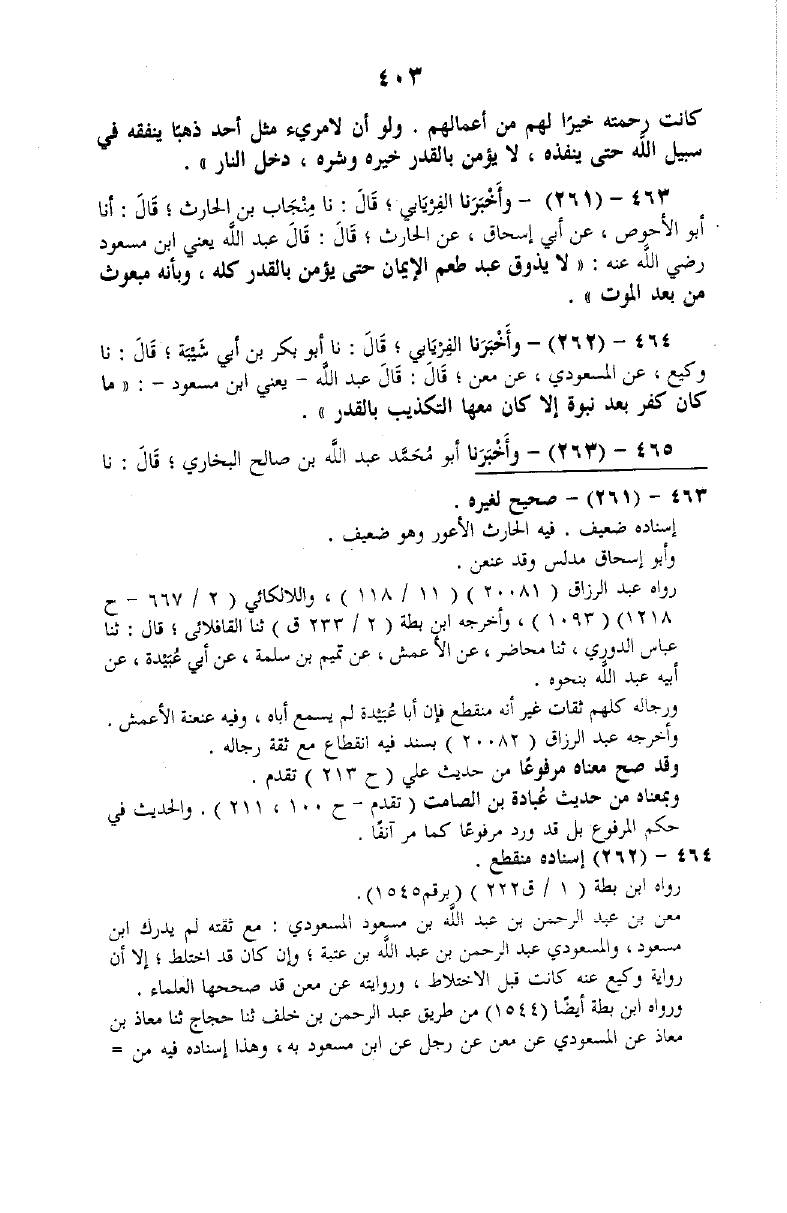 ٤٠٣
كانت رحمته خيرًا لهم من أعمالهم . ولو أن لامريء مثل أحد ذهبًا ينفقه في
سبيل اللَّه حتى ينفذه ، لا يؤمن بالقدر خيره وشره ، دخل النار » .
٤٦٣ - (٢٦١) - وأَخْبَرَنا الفِرْيَابي ؛ قَالَ : نا مِنْجَاب بن الحارث ؛ قَالَ : أنا
أبو الأحوص ، عن أبي إسحاق ، عن الحارث ؛ قَالَ : قَالَ عبد اللَّه يعني ابن مسعود
رضي اللَّه عنه : « لا يذوق عبد طعم الإيمان حتى يؤمن بالقدر كله ، وبأنه مبعوث
من بعد الموت » .
٤٦٤ - (٢٦٢) - وأَخْبَرَنا الفِرْيَابي ؛ قَالَ : نا أبو بكر بن أبي شَيْبَة ؛ قَالَ : نا
وكيع ، عن المسعودي ، عن معن ؛ قَالَ : قَالَ عبد اللَّه - يعني ابن مسعود - : « ما
كان كفر بعد نبوة إلا كان معها التكذيب بالقدر » .
٤٦٥ - (٢٦٣) - وأَخْبَرَنا أبو مُحَمَّد عبد اللَّه بن صالح البخاري ؛ قَالَ : نا
٤٦٣ - (٢٦١) - صحيح لغيره .
إسناده ضعيف . فيه الحارث الأعور وهو ضعيف .
وأبو إسحاق مدلس وقد عنعن .
رواه عبد الرزاق ( ٢٠٠٨١ ) ( ١١ / ١١٨ ) ، واللالكائي ( ٢ / ٦٦٧ - ح
١٢١٨) ( ١٠٩٣ ) ، وأخرجه ابن بطة ( ٢ / ٢٣٣ ق ) ثنا القافلائي ؛ قال : ثنا
عباس الدوري ، ثنا محاضر ، عن الأعمش ، عن تميم بن سلمة ، عن أبي عُبَيْدة ، عن
أبيه عبد اللَّه بنحوه .
ورجاله كلهم ثقات غير أنه منقطع فإن أبا عُبَيْدة لم يسمع أباه ، وفيه عنعنة الأعمش .
وأخرجه عبد الرزاق ( ٢٠٠٨٢ ) بسند فيه انقطاع مع ثقة رجاله .
وقد صح معناه مرفوعًا من حديث علي ( ح ٢١٣ ) تقدم .
وبمعناه من حديث عُبادة بن الصامت ( تقدم - ح ١٠٠ ، ٢١١ ) . والحديث في
حكم المرفوع بل قد ورد مرفوعًا كما مر آنفًا .
٤٦٤ - (٢٦٢) إسناده منقطع .
رواه ابن بطة ( ١ / ق٢٢٢ ) (برقم١٥٤٥).
معن بن عبد الرحمن بن عبد اللَّه بن مسعود المسعودي : مع ثقته لم يدرك ابن
مسعود ، والمسعودي عبد الرحمن بن عبد اللَّه بن عتبة ؛ وإن كان قد اختلط ؛ إلا أن
رواية وكيع عنه كانت قبل الاختلاط ، وروايته عن معن قد صححها العلماء .
ورواه ابن بطة أيضًا (١٥٤٤) من طريق عبد الرحمن بن خلف ثنا حجاج ثنا معاذ بن
معاذ عن المسعودي عن معن عن رجل عن ابن مسعود به ، وهذا إسناده فيه من =